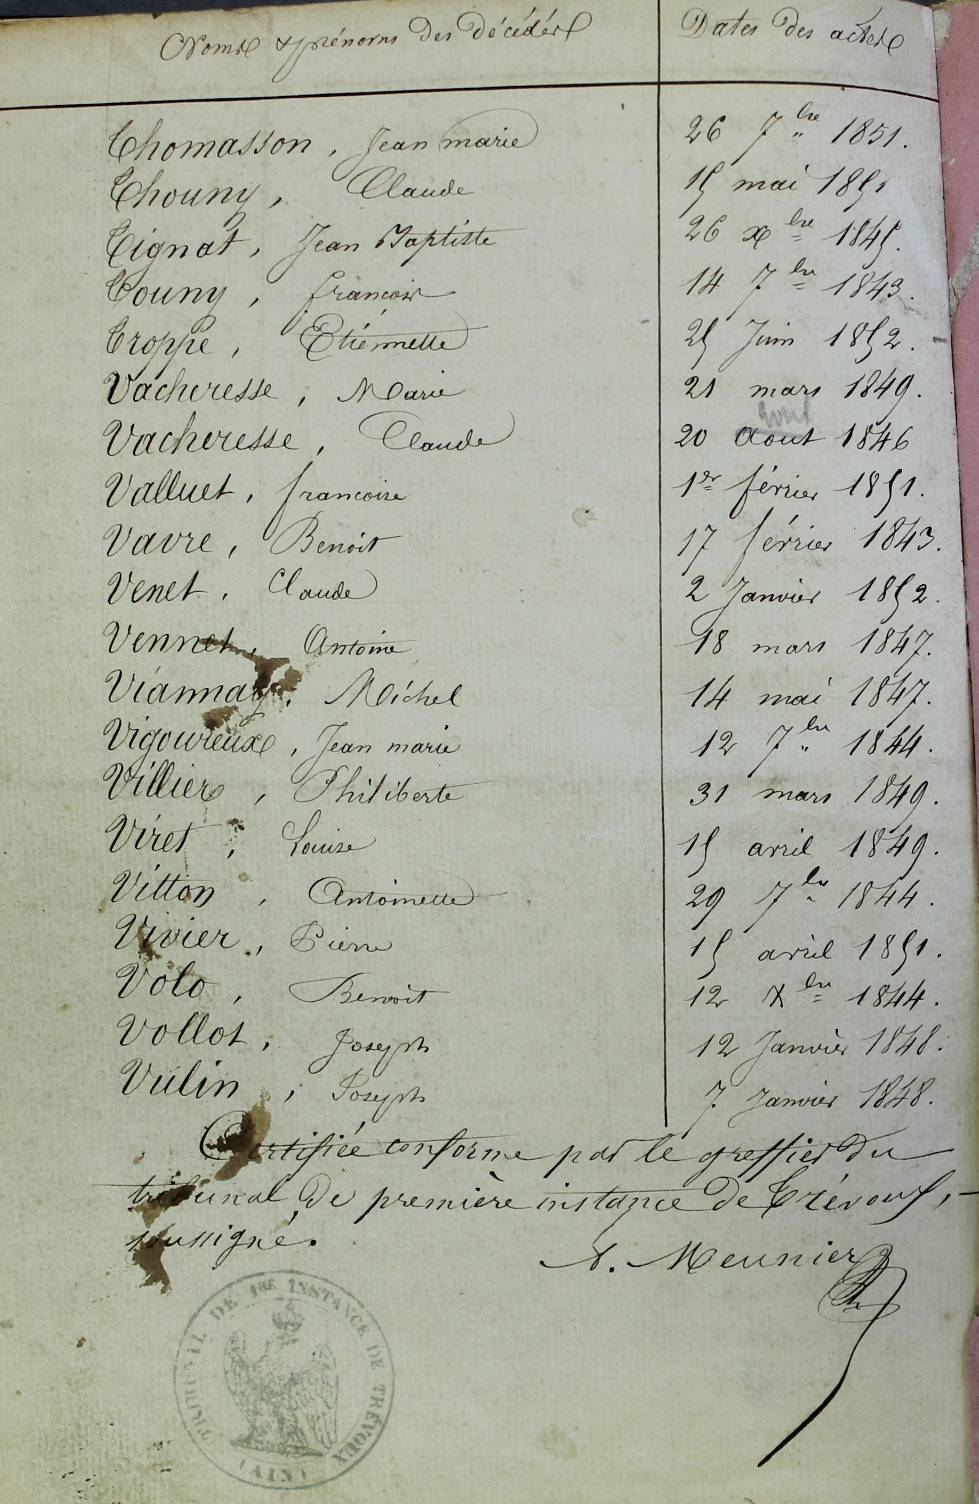 Noms & prénoms des décédés Dates des actes
Thomasson, Jean marie 26 7bre 1851.
Thouny, Claude 15 mai 1851
Tignat, Jean Baptiste 26 xbre 1845.
Touny, francois 14 7bre 1843.
Troppe, Etiennette 25 Juin 1852.
Vacheresse, Marie 21 mars 1849.
Vacheresse, Claude 20 Aout 1846
Valluet, francoise 1er février 1851.
Vavre, Benoit 17 février 1843.
Venet, Claude 2 Janvier 1852.
Vennet, Antoine 18 mars 1847.
Viannay, Michel 14 mai 1847.
Vigoureux, Jean marie 12 7bre 1844.
Villier, Philiberte 31 mars 1849.
Viret, Louise 15 avril 1849.
Vitton, Antoinette 29 7bre 1844.
Vivier, Pierre 15 avril 1851.
Volo, Benoit 12 Xbre 1844.
Vollot, Joseph 12 Janvier 1848.
Vulin, Joseph 7 Janvier 1848.
Certifiée conforme par le greffier du
tribunal de première instance de Trévoux,
soussigné.
A. Meunier
TRIBUNAL DE 1RE INSTANCE DE TRÉVOUX
(AIN)